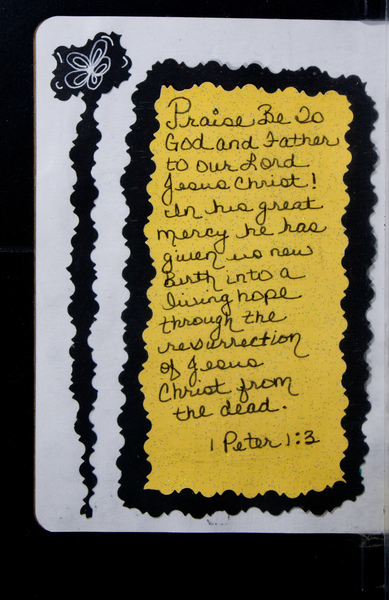 Praise Be To
God and Father
to our Lord
Jesus Christ!
In his great
mercy he has
given us new
Birth into a
living hope
through the
resurrection
of Jesus
Christ from
the dead.
1 Peter 1:3